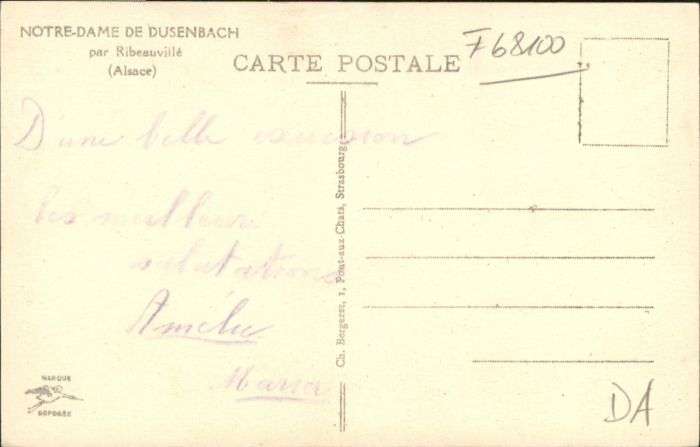 NOTRE-DAME DE DUSENBACH
par Ribeauvillé
(Alsace)
CARTE POSTALE
F68100
D'une belle excursion
les meilleures
salutations
Amélie
Ch. Bergeret, 1, Pont-aux-Chats, Strasbourg
MARQUE
DÉPOSÉE
DA